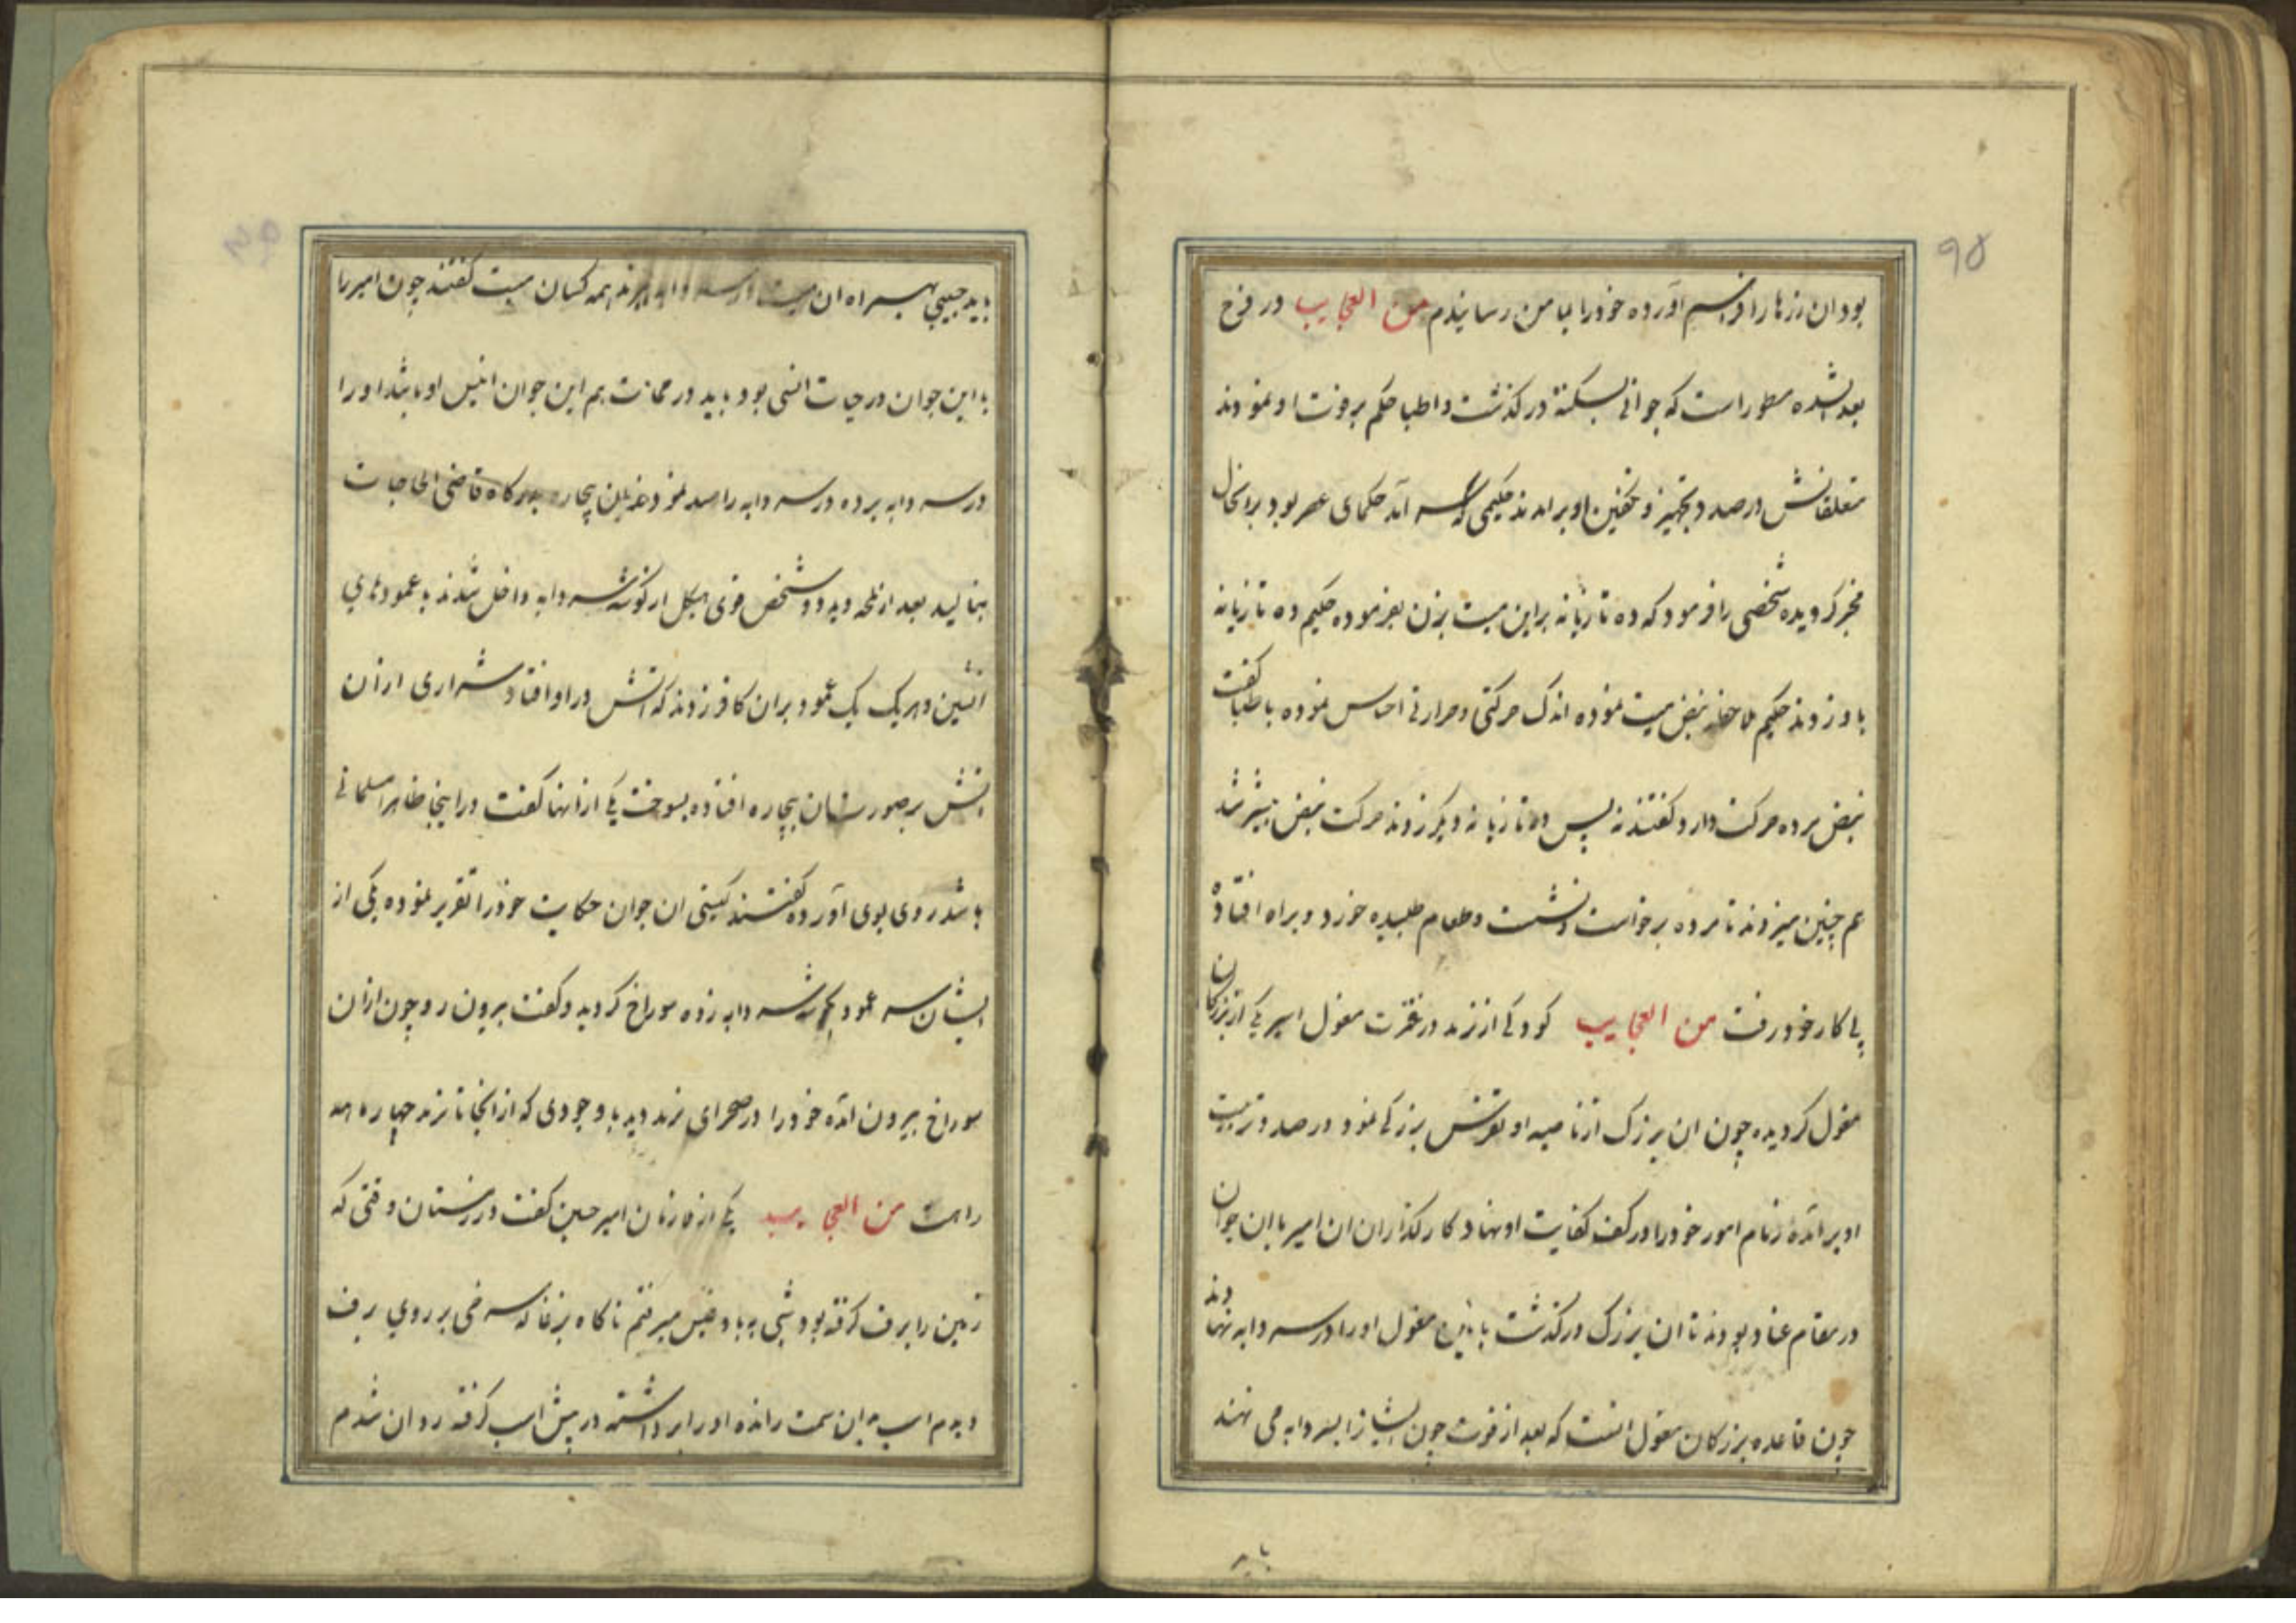 ۹۵
بود ان رزها را فراهم آورده خود را بامن رسانیدم من العجایب در فرج
بعد الشده مسطور است که جوانی بسکته درگذشت و اطبا حکم برفوت او نمودند
متعلقانش درصدد تجهیز و تکفین او برامدند حکیمی که سرآمد حکمای عصر بود برانحال
مخبر کردیده شخصی را فرمود که ده تازیانه براین میت بزن بفرموده حکیم ده تازیانه
باو زدند حکیم ملاحظه نبض میت نموده اندک حرکتی و حرارتی احساس نموده باطبا کفت
نبض مرده حرکت دارد کفتند نه پس ده تازیانه دیکر زدند حرکت نبض بیشتر شد
هم چنین میزدند تا مرده برخواست و نشست و طعام طلبیده خورد و براه افتاده
پی کار خود رفت من العجایب کودکی از ترند در فترت مغول اسیر یکی از بزرکان
مغول کردیده چون ان بزرک از ناصیه او تفرس بزرکی نمود درصدد تربیت
او برآمده زمام امور خود را در کف کفایت او نهاد کارکذاران ان امیر باان جوان
در مقام عناد بودند تا ان بزرک درکذشت باین مغول او را درسردابه نهادند
چون قاعده بزرکان مغول انست که بعد از فوت چون ایشانرا بسردابه می نهند
باید
باید حبیبی همراه ان میت در سردابه برند همه کسان میت کفتند چون امیر را
با این جوان در حیات انسی بود باید در ممات هم این جوان انیس او باشد او را
درسردابه برده در سردابه را سد نمودند ان بیچاره بدرکاه قاضی الحاجات
بنالید بعد از لمحه دید دو شخص قوی هیکل از کوشه سردابه داخل شدند با عمودهای
اتشین و هریک یک عمود بران کافر زدند که اتش در او افتاد شراری ازان
اتش برصورت ان بیچاره افتاده بسوخت یکی ازانها کفت دراینجا ظاهرا مسلمانی
باشد روی بوی آورده کفتند کیستی ان جوان حکایت خود را تقریر نموده یکی از
ایشان سر عمود بکوشه سردابه زده سوراخ کردید و کفت بیرون رو چون ازان
سوراخ بیرون آمده خود را درصحرای ترند دید با وجودی که از انجا تا ترند چهار ماهه
راهست من العجایب یکی از غازیان امیر حسین کفت در زمستان وقتی که
زمین را برف کرفته بود شبی به بادغیس میرفتم ناکاه بزغاله سرخی بر روی برف
دیدم اسب بدان سمت رانده او را برداشته در پیش اسب کرفته روان شدم